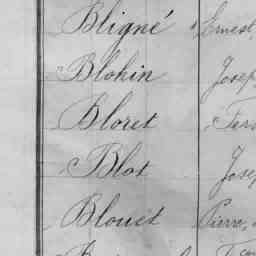 Bligné Ernest,
Blohin Josep
Bloret
Blot Josep
Blouet Pierre,